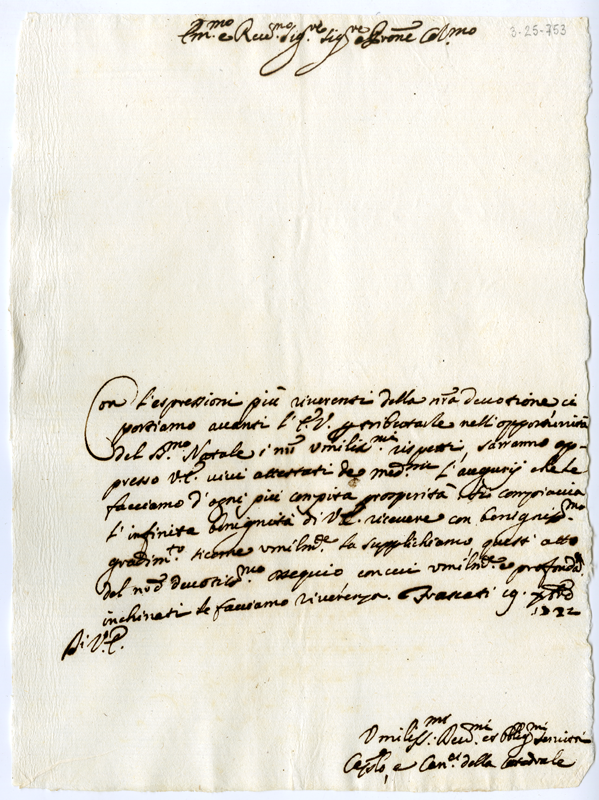 Em.mo e Reu.mo Sig.re Sig.re e Prone Col.mo
3-25-753
Con l'espressioni più riuerenti della nrã deuotione ci
portiamo auanti l'E.V. p tributarle nell'opportunità
del S.mo Natale i nrĩ vmiliss.mi rispetti, saranno ap-
presso V.E. viui attestati de med.mi l'augurij che le
facciamo d'ogni più compita prosperità compiaccia
l'infinita benignità di V.E. riceuere con benigniss.mo
gradim.to sicome vmilm.te la supplichiamo quest' atto
del nrõ deuotiss.mo ossequio con cui vmilm.te e profondam.te
inchinati le facciamo riuerenza. Frascati 19. Xbre
1722
Di V.E.
Vmiliss.mi Deu.mi et Obblig.mi Seruitori
Capolo, e Can.ci della Catedrale